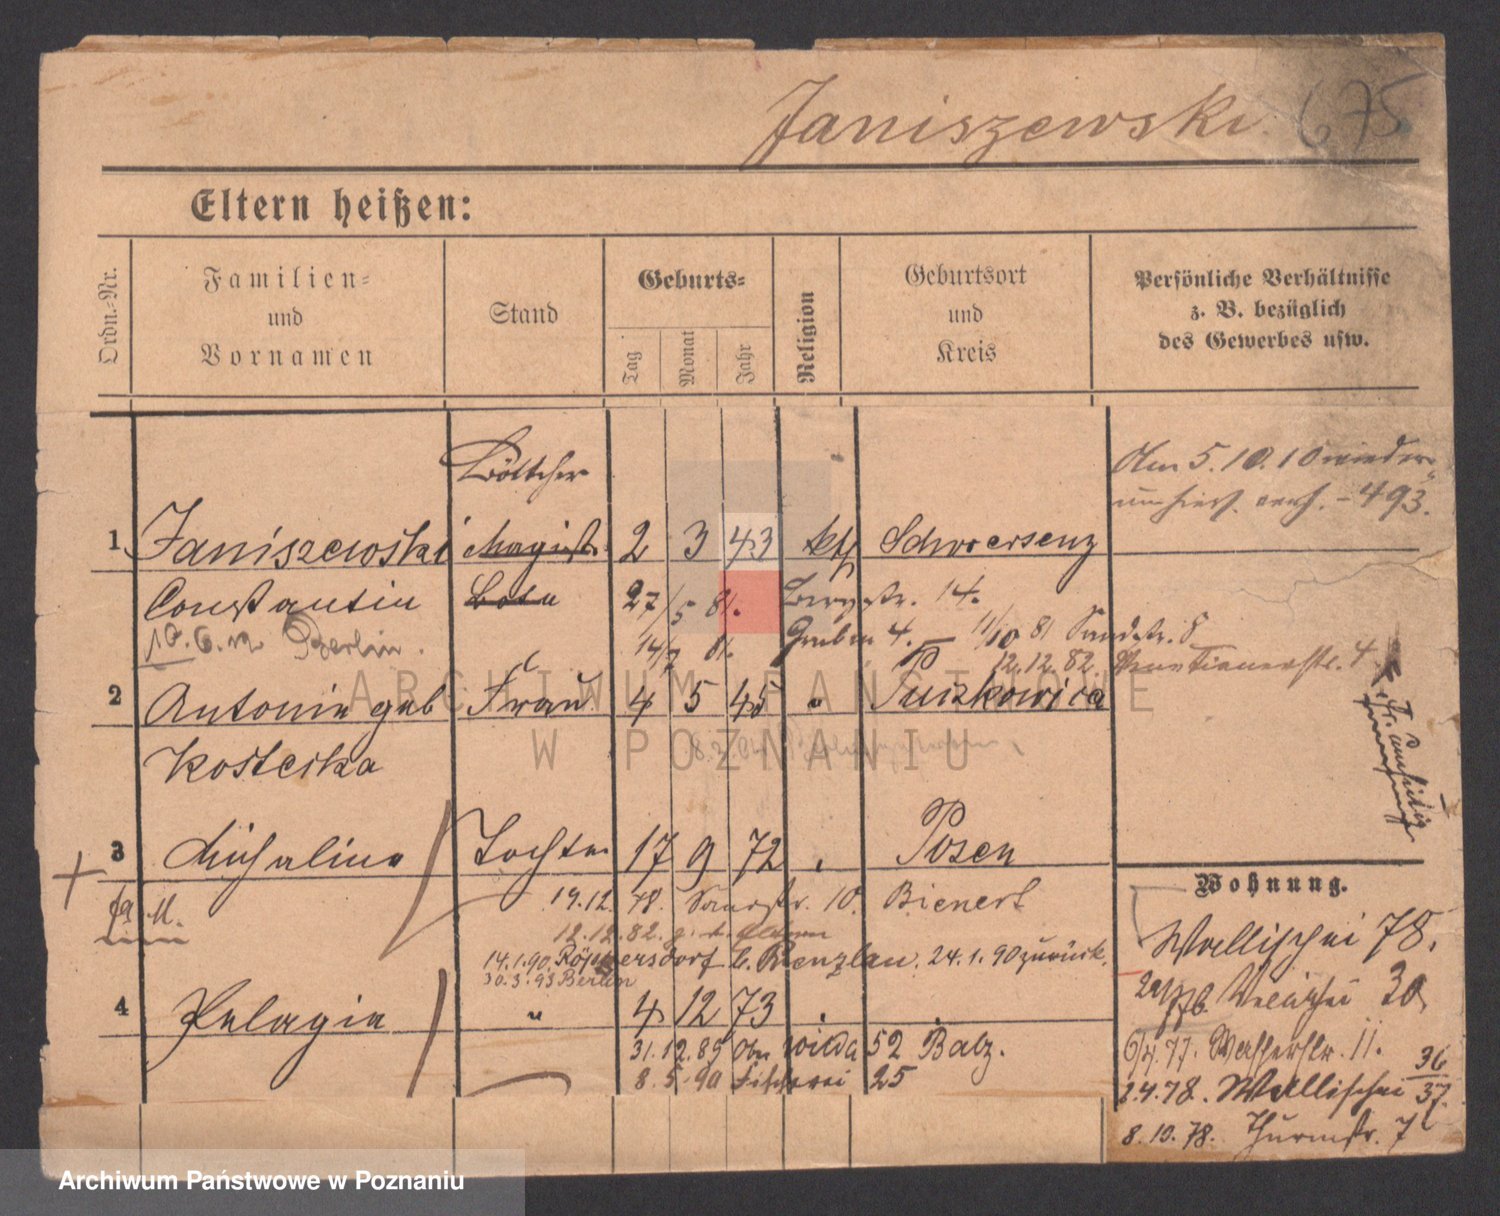 Janiszewski. 675
Eltern heißen:
Ordn.-Nr.
Familien- und Vornamen
Stand
Geburts-
Tag
Monat
Jahr
Religion
Geburtsort und Kreis
Persönliche Verhältnisse
z. B. bezüglich
des Gewerbes usw.
Böttcher
Am 5.10.10 wieder
493.
1 Janiszewski Magistr. 2 3 43 kth Schwersenz
Constantin Bote 27/5 81. Bergstr. 14.
10.6. Berlin. 14/7 81. Graben 4. 11/10 81 Sandstr. 8
12.12.82 Venetianerstr. 4
2 Antonie geb Frau 4 5 45 " Pudzkowica
Kosteska
3 Michaline Tochter 17 9 72 " Posen
Wohnung.
19.12.78. 10. Bienert
12.12.82.
14.1.90. Röppersdorf b. Prenzlau. 24.1.90 zurück.
30.3.93 Berlin
4 Pelagia " 4 12 73
31.12.89 Ober Wilda 52 Balz.
8.5.90 Fischerei 25
Wallischei 78.
30.
77. Wasserstr. 11.
2.4.78. Wallischei 36/37.
8.10.78. Thurmstr. 7
ARCHIWUM PAŃSTWOWE
W POZNANIU
Archiwum Państwowe w Poznaniu